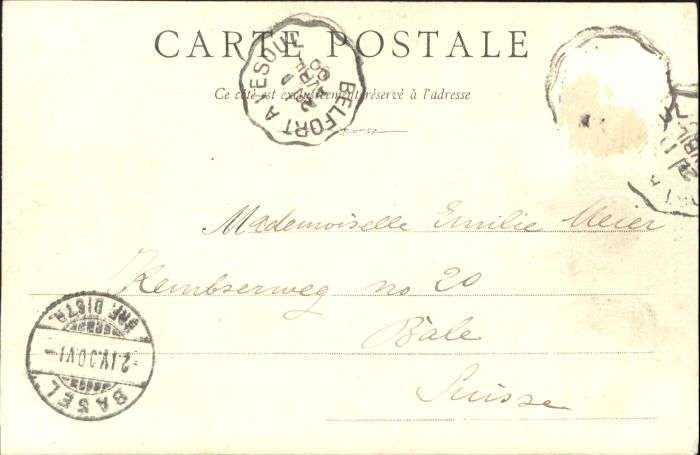 CARTE POSTALE
Ce côté est exclusivement réservé à l'adresse
BELFORT A VESOUL
2 AVRIL
00
Mademoiselle Emilie Meier
Kembserweg no 20
Bâle
Suisse
BASEL
2.IV.00.VI
BRF. DISTR.